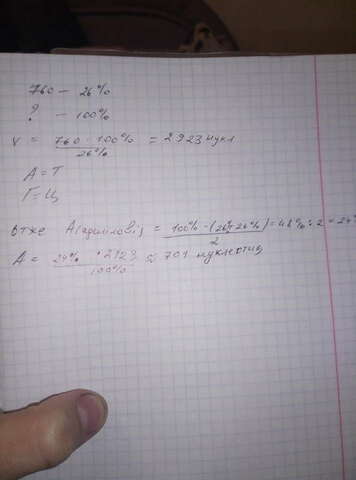 760 — 26%
? — 100%
x = 760 · 100% / 26% = 2923 нукл
А = Т
Г = Ц
Отже А(аденілові) = 100% - (26%+26%) / 2 = 48% : 2 = 24%
А = 24% · 2923 / 100% ≈ 701 нуклеотид